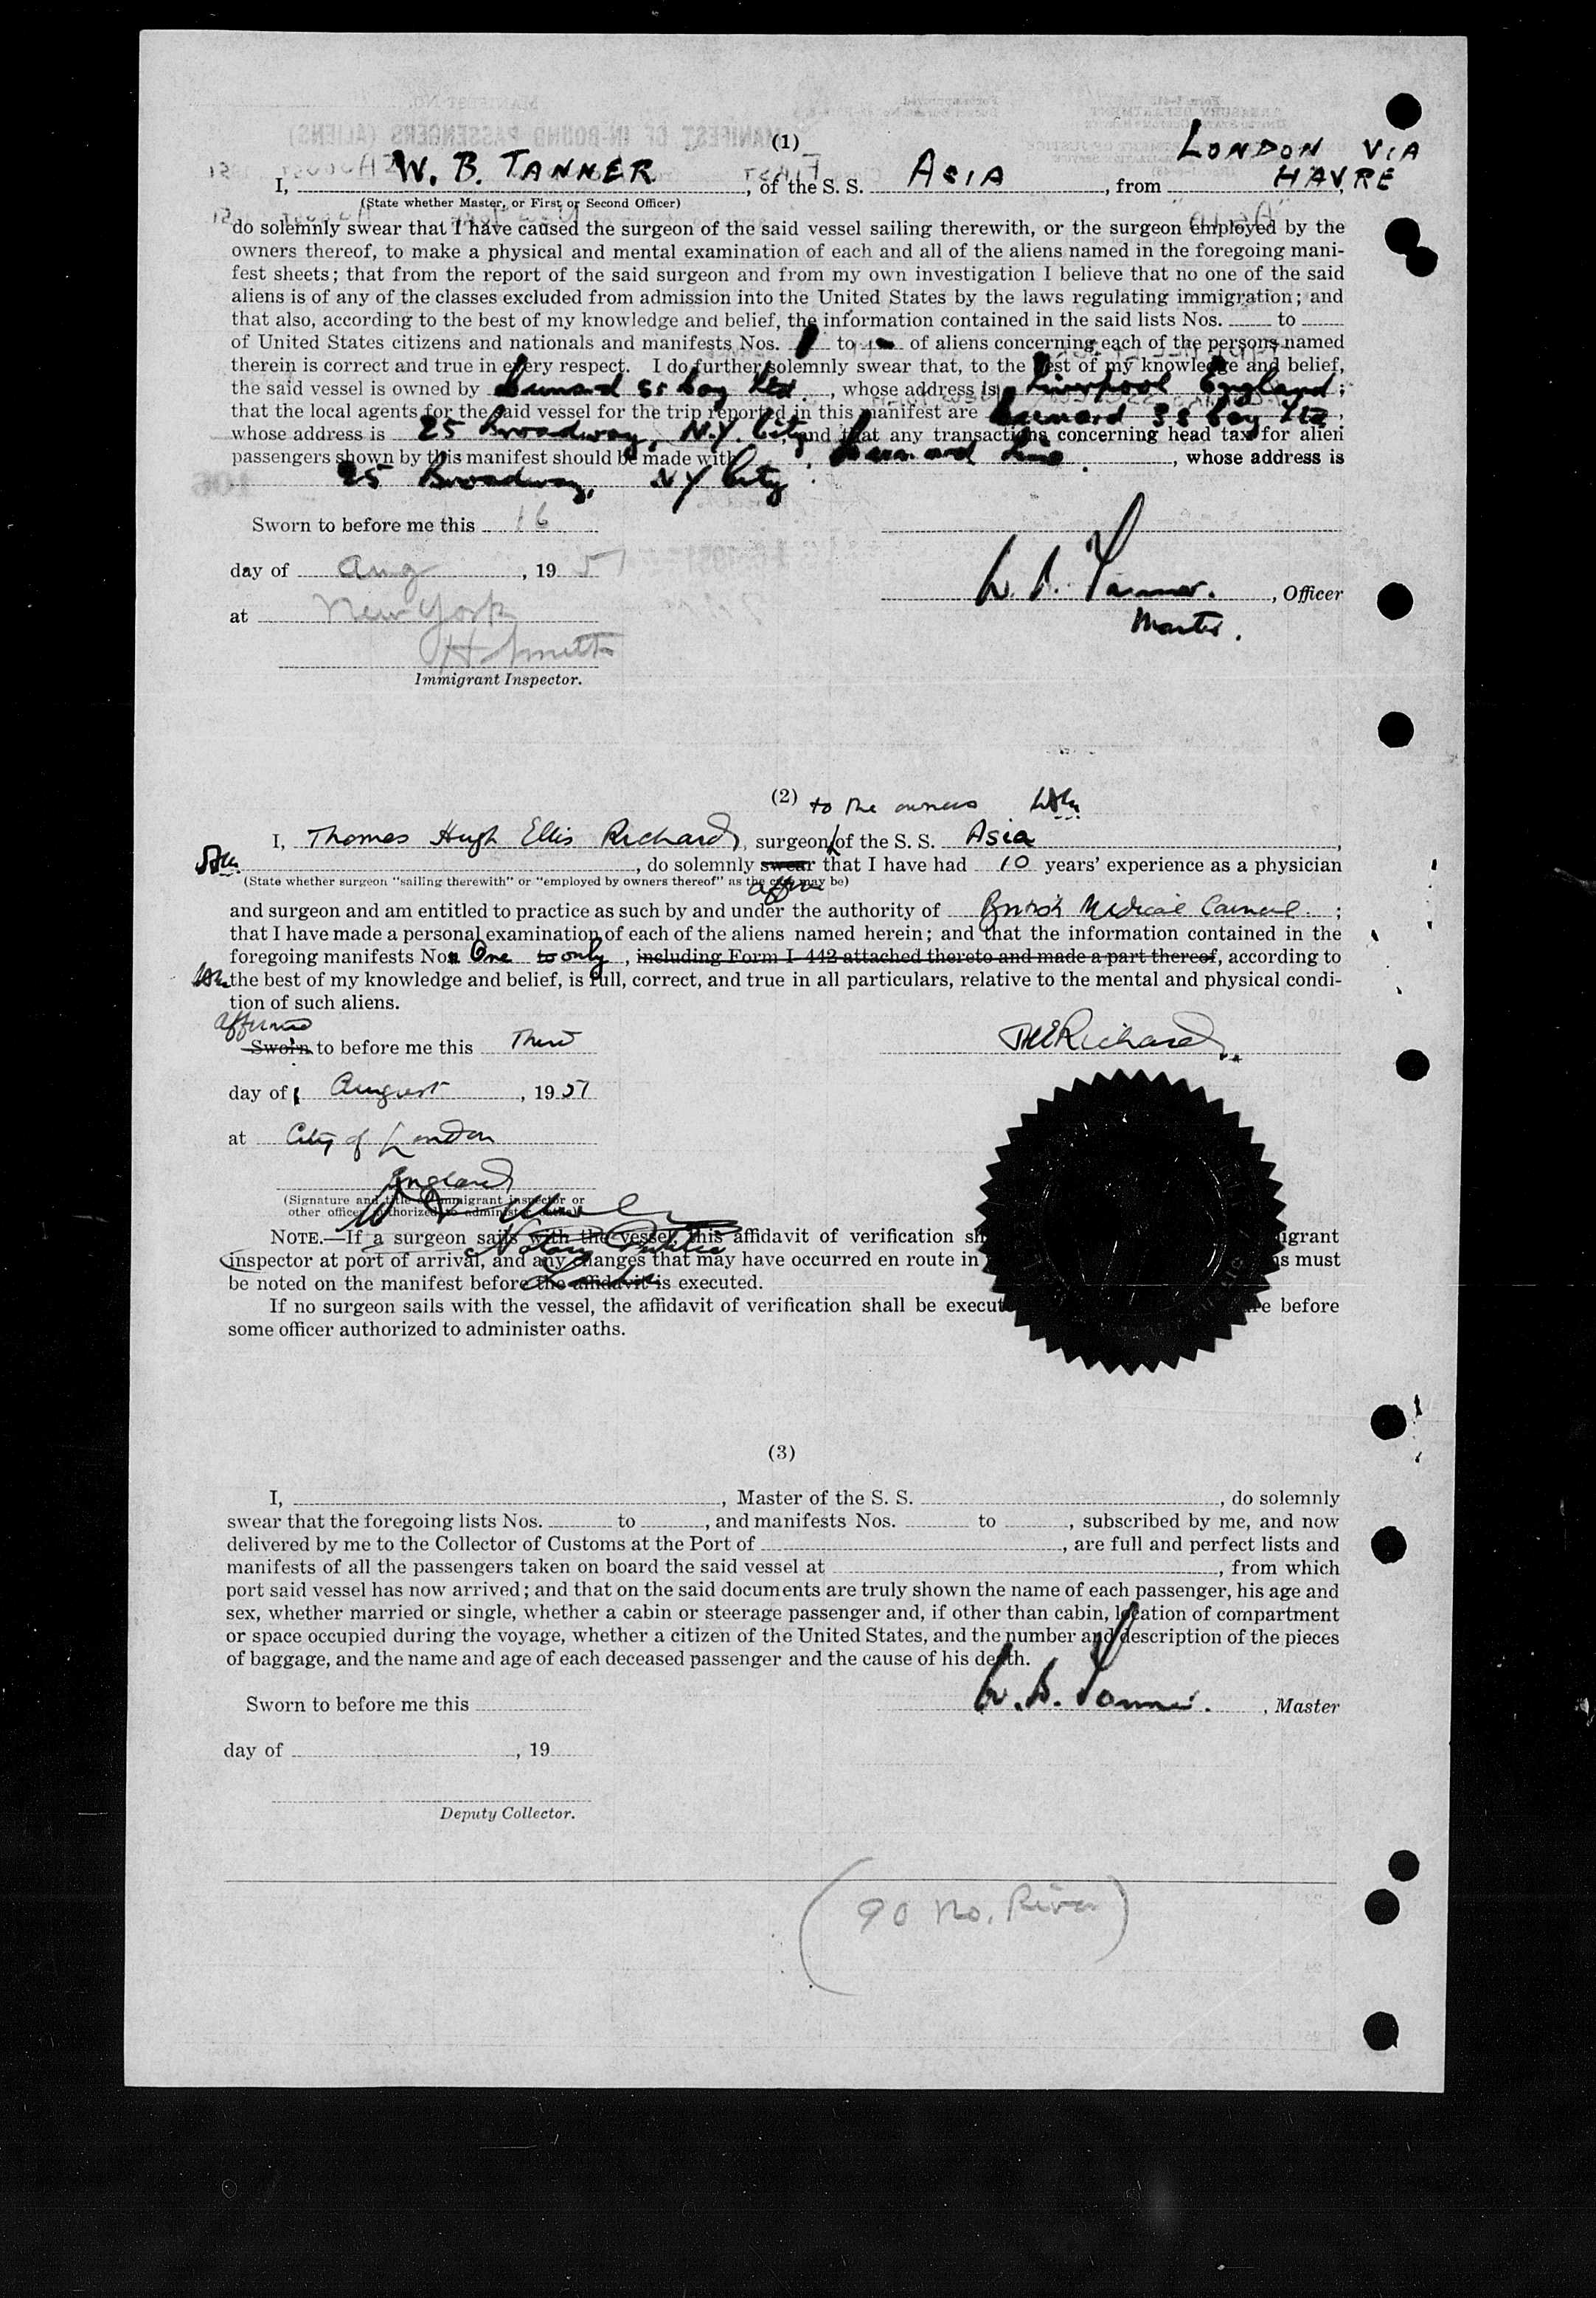 (1)
I, W. B. TANNER, of the S. S. ASIA, from LONDON VIA HAVRE,
(State whether Master, or First or Second Officer)
do solemnly swear that I have caused the surgeon of the said vessel sailing therewith, or the surgeon employed by the
owners thereof, to make a physical and mental examination of each and all of the aliens named in the foregoing mani-
fest sheets; that from the report of the said surgeon and from my own investigation I believe that no one of the said
aliens is of any of the classes excluded from admission into the United States by the laws regulating immigration; and
that also, according to the best of my knowledge and belief, the information contained in the said lists Nos. to
of United States citizens and nationals and manifests Nos. to of aliens concerning each of the persons named
therein is correct and true in every respect. I do further solemnly swear that, to the best of my knowledge and belief,
the said vessel is owned by Cunard SS Coy Ltd., whose address is Liverpool England;
that the local agents for the said vessel for the trip reported in this manifest are Cunard SS Coy Ltd,
whose address is 25 Broadway, N.Y. City, and that any transactions concerning head tax for alien
passengers shown by this manifest should be made with Cunard Line., whose address is
25 Broadway, NY City.
Sworn to before me this 16
day of Aug, 1951
at New York
W. B. Tanner., Officer
Master.
Immigrant Inspector.
(2)
to the owners
I, Thomas Hugh Ellis Richards, surgeon of the S. S. Asia,
, do solemnly swear that I have had 10 years' experience as a physician
(State whether surgeon "sailing therewith" or "employed by owners thereof" as the case may be)
affirm
and surgeon and am entitled to practice as such by and under the authority of British Medical Council.;
that I have made a personal examination of each of the aliens named herein; and that the information contained in the
foregoing manifests No. One to only, including Form I-442 attached thereto and made a part thereof, according to
the best of my knowledge and belief, is full, correct, and true in all particulars, relative to the mental and physical condi-
tion of such aliens.
affirmed
Sworn to before me this Third
THERichards
day of August, 1951
at City of London
England
(Signature and title of immigrant inspector or
other officer authorized to administer oaths)
Notary Public
London
NOTE.—If a surgeon sails with the vessel, this affidavit of verification igrant
inspector at port of arrival, and any changes that may have occurred en route in must
be noted on the manifest before the affidavit is executed.
If no surgeon sails with the vessel, the affidavit of verification shall be execut before
some officer authorized to administer oaths.
(3)
I, , Master of the S. S. , do solemnly
swear that the foregoing lists Nos. to , and manifests Nos. to , subscribed by me, and now
delivered by me to the Collector of Customs at the Port of , are full and perfect lists and
manifests of all the passengers taken on board the said vessel at , from which
port said vessel has now arrived; and that on the said documents are truly shown the name of each passenger, his age and
sex, whether married or single, whether a cabin or steerage passenger and, if other than cabin, location of compartment
or space occupied during the voyage, whether a citizen of the United States, and the number and description of the pieces
of baggage, and the name and age of each deceased passenger and the cause of his death.
Sworn to before me this
W. B. Tanner., Master
day of , 19
Deputy Collector.
(90 No. River)